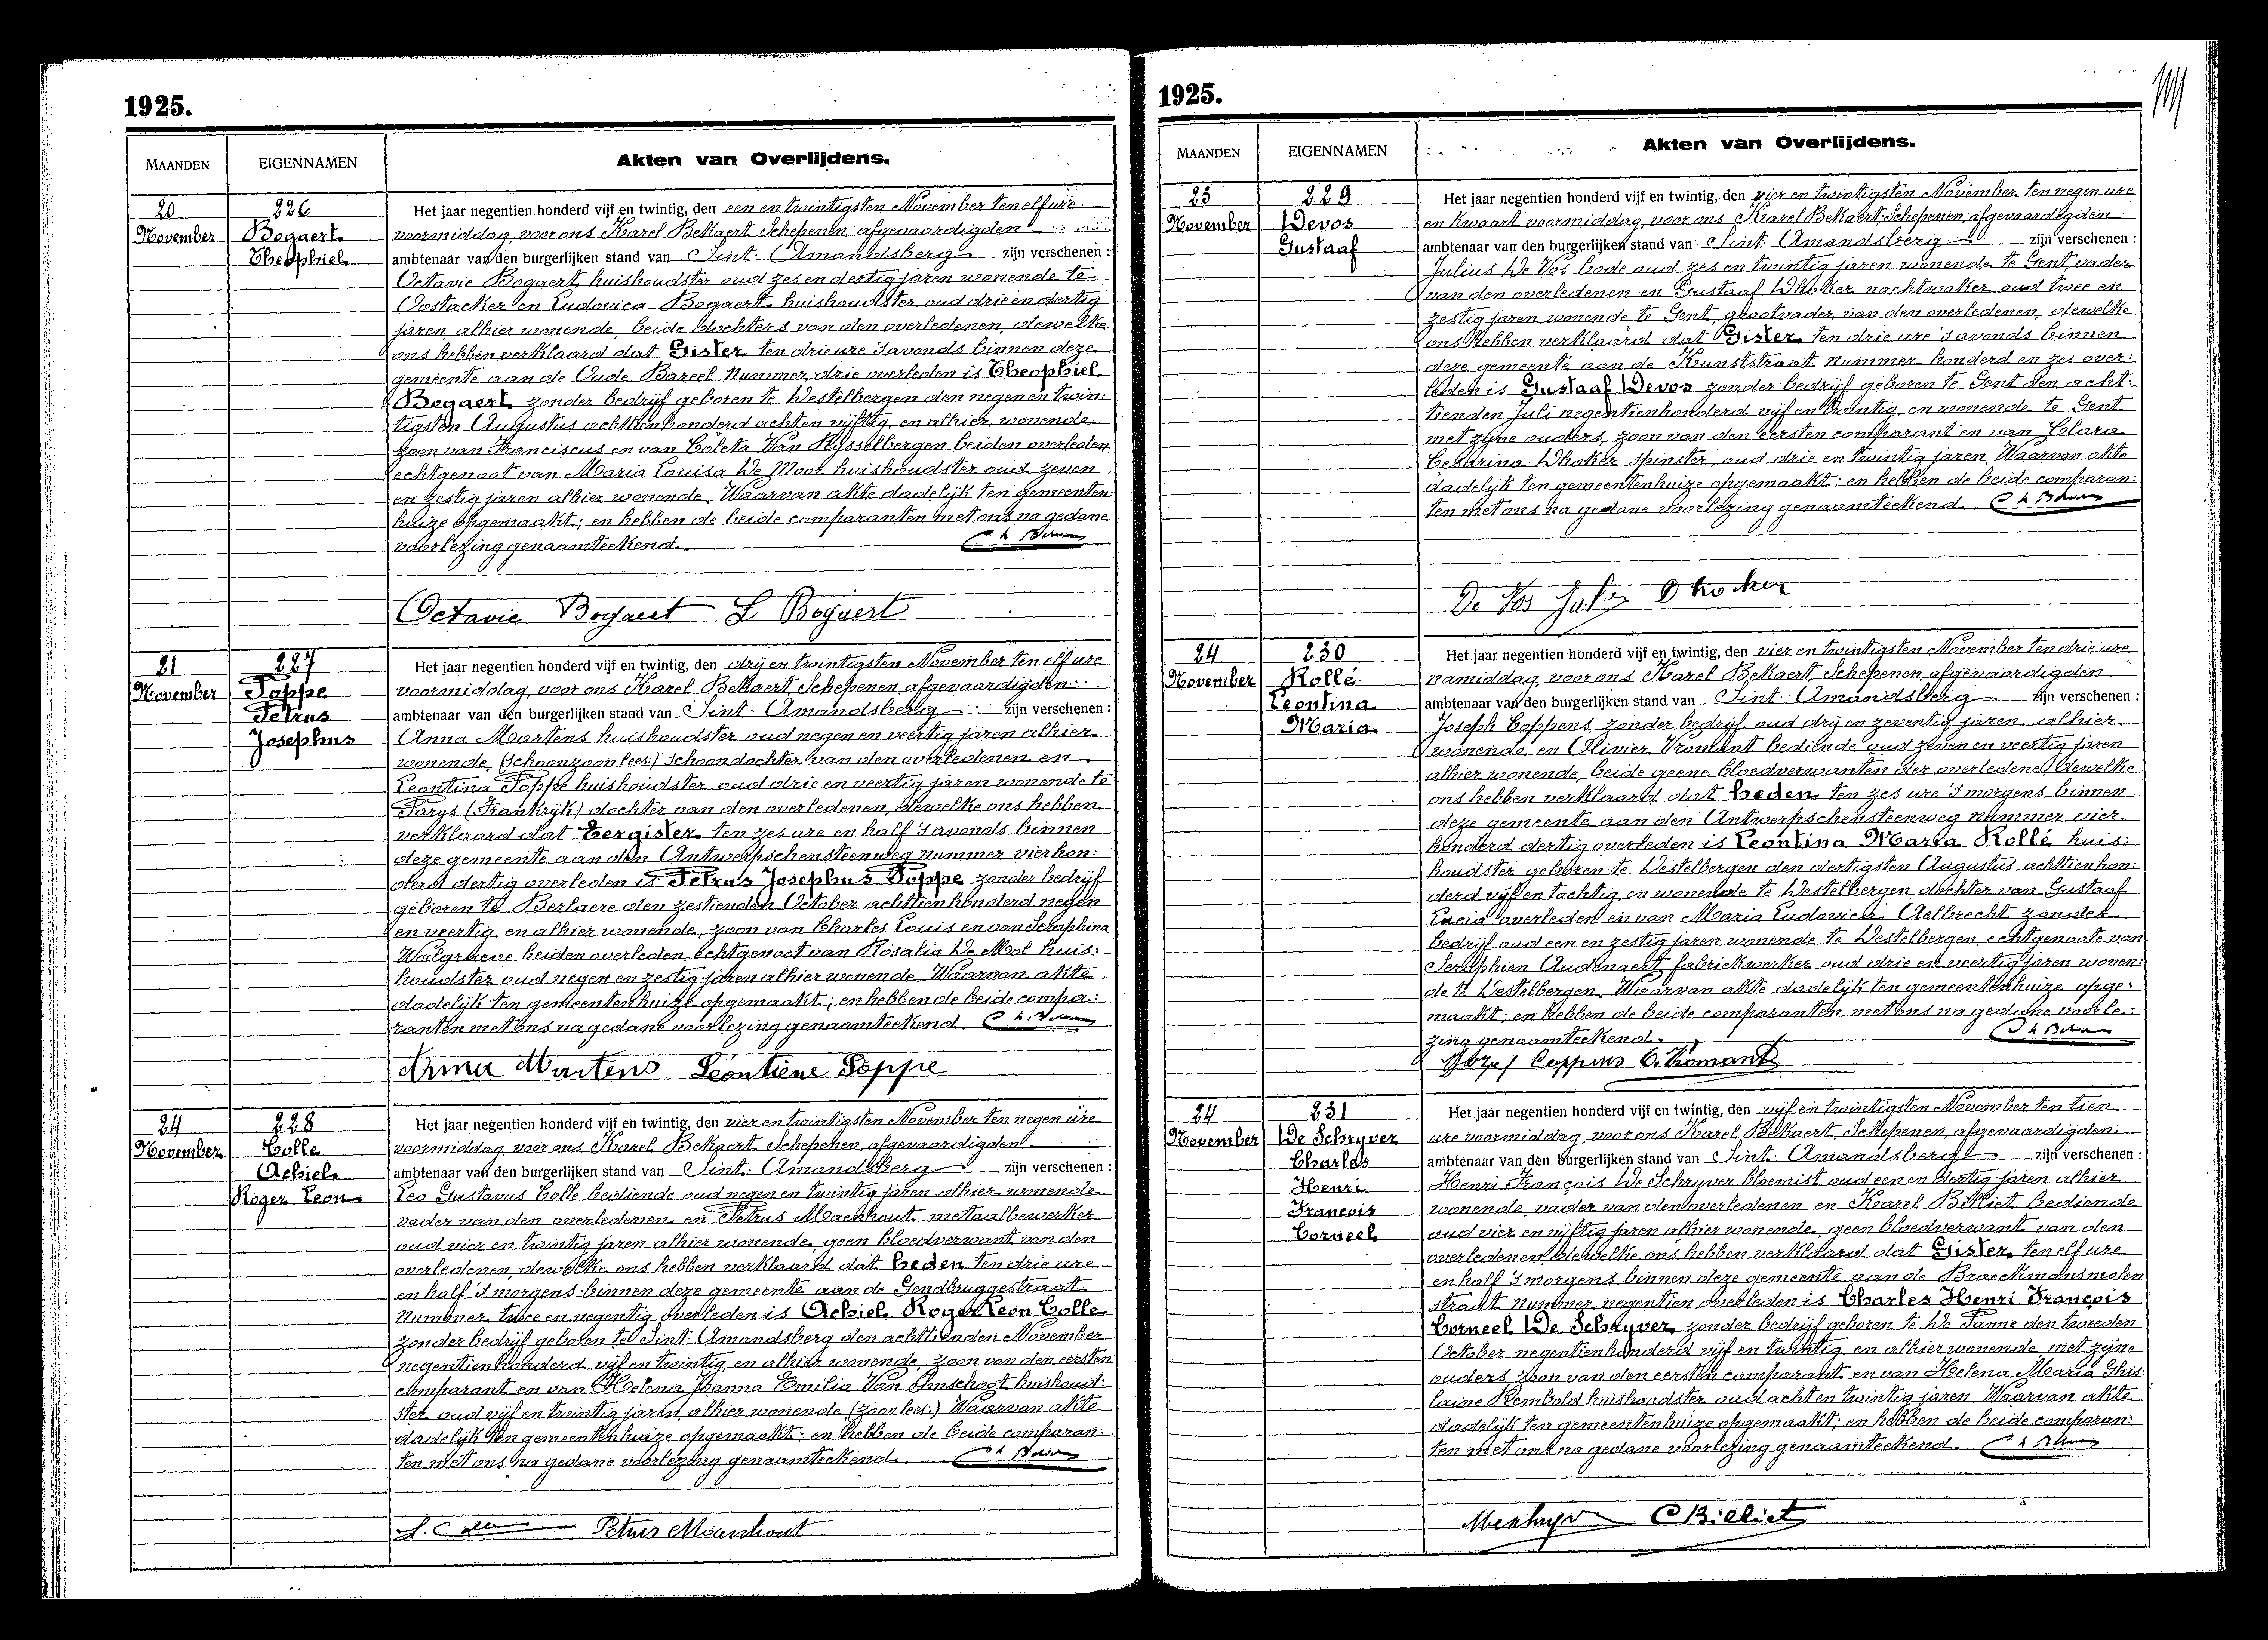 1925.
MAANDEN
EIGENNAMEN
Akten van Overlijdens.
20
November
226
Bogaert
Theophiel
Het jaar negentien honderd vijf en twintig, den een en twintigsten November ten elf ure
voormiddag, voor ons Karel Bekaert Schepenen, afgevaardigden
ambtenaar van den burgerlijken stand van Sint Amandsberg zijn verschenen :
Octavie Bogaert huishoudster oud zes en dertig jaren wonende te
Oostacker en Ludovica Bogaert huishoudster oud drie en dertig
jaren alhier wonende, beide dochters van den overledenen, dewelke
ons hebben verklaard dat Gister ten drie ure 's avonds binnen deze
gemeente aan de Oude Bareel Nummer drie overleden is Theophiel
Bogaert zonder bedrijf geboren te Destelbergen den negen en twin:
tigsten Augustus achttienhonderd acht en vijftig, en alhier wonende
zoon van Franciscus en van Coleta Van Rysselbergen beiden overleden
echtgenoot van Maria Louisa De Moor huishoudster oud zeven
en zestig jaren alhier wonende. Waarvan akte dadelijk ten gemeenten:
huize opgemaakt; en hebben de beide comparanten met ons na gedane
voorlezing genaamteekend.
Octavie Bogaert L Bogaert
21
November
227
Poppe
Petrus
Josephus
Het jaar negentien honderd vijf en twintig, den drij en twintigsten November ten elf ure
voormiddag, voor ons Karel Bekaert, Schepenen, afgevaardigden
ambtenaar van den burgerlijken stand van Sint Amandsberg zijn verschenen :
Anna Martens huishoudster oud negen en veertig jaren alhier
wonende, (schoonzoon lees:) schoondochter van den overledenen en
Leontina Poppe huishoudster oud drie en veertig jaren wonende te
Parys (Frankrijk) dochter van den overledenen, dewelke ons hebben
verklaard dat Eergister ten zes ure en half 's avonds binnen
deze gemeente aan den Antwerpschensteenweg nummer vierhon:
derd dertig overleden is Petrus Josephus Poppe zonder bedrijf
geboren te Berlaere den zestienden October achttienhonderd negen
en veertig, en alhier wonende, zoon van Charles Louis en van Seraphina
Walgraeve beiden overleden, echtgenoot van Rosalia De Mol huis:
houdster oud negen en zestig jaren alhier wonende. Waarvan akte
dadelijk ten gemeentenhuize opgemaakt; en hebben de beide compa:
ranten met ons na gedane voorlezing genaamteekend.
Anna Martens Leontiene Poppe
24
November
228
Colle
Achiel
Roger Leon
Het jaar negentien honderd vijf en twintig, den vier en twintigsten November ten negen ure
voormiddag, voor ons Karel Bekaert, Schepenen, afgevaardigden
ambtenaar van den burgerlijken stand van Sint Amandsberg zijn verschenen :
Leo Gustavus Colle bediende oud negen en twintig jaren alhier wonende
vader van den overledenen en Petrus Maenhout metaalbewerker
oud vier en twintig jaren alhier wonende, geen bloedverwant van den
overledenen, dewelke ons hebben verklaard dat heden ten drie ure
en half 's morgens binnen deze gemeente aan de Gendbruggestraat
Nummer twee en negentig overleden is Achiel Roger Leon Colle
zonder bedrijf geboren te Sint Amandsberg den achttienden November
negentienhonderd vijf en twintig en alhier wonende, zoon van den eersten
comparant en van Helena Joanna Emilia Van Imschoot huishoud:
ster oud vijf en twintig jaren alhier wonende (zoon lees:) Waarvan akte
dadelijk ten gemeentenhuize opgemaakt; en hebben de beide comparan:
ten met ons na gedane voorlezing genaamteekend.
Petrus Maenhout
1925.
MAANDEN
EIGENNAMEN
Akten van Overlijdens.
23
November
229
Devos
Gustaaf
Het jaar negentien honderd vijf en twintig, den vier en twintigsten November ten negen ure
en kwaart voormiddag, voor ons Karel Bekaert Schepenen, afgevaardigden
ambtenaar van den burgerlijken stand van Sint Amandsberg zijn verschenen :
Julius De Vos bode oud zes en twintig jaren wonende te Gent, vader
van den overledenen en Gustaaf Dhoker nachtwaker oud twee en
zestig jaren wonende te Gent, grootvader van den overledenen, dewelke
ons hebben verklaard dat Gister ten drie ure 's avonds binnen
deze gemeente aan de Kunststraat Nummer honderd en zes over:
leden is Gustaaf Devos zonder bedrijf geboren te Gent den acht:
tienden Juli negentienhonderd vijf en twintig, en wonende te Gent
met zijne ouders, zoon van den eersten comparant en van Clara
Cesarina Dhoker spinster, oud drie en twintig jaren Waarvan akte
dadelijk ten gemeentenhuize opgemaakt; en hebben de beide comparan:
ten met ons na gedane voorlezing genaamteekend.
De Vos Dhoker
24
November
230
Rollé
Leontina
Maria
Het jaar negentien honderd vijf en twintig, den vier en twintigsten November ten drie ure
namiddag, voor ons Karel Bekaert, Schepenen, afgevaardigden
ambtenaar van den burgerlijken stand van Sint Amandsberg zijn verschenen :
Joseph Coppens zonder bedrijf oud drij en zeventig jaren alhier
wonende, en Olivier Vromant bediende oud zeven en veertig jaren
alhier wonende, beide geene bloedverwanten der overledene, dewelke
ons hebben verklaard dat heden ten zes ure 's morgens binnen
deze gemeente aan den Antwerpschensteenweg nummer vier
honderd dertig overleden is Leontina Maria Rollé huis:
houdster geboren te Destelbergen den dertigsten Augustus achttienhon:
derd vijf en tachtig, en wonende te Destelbergen dochter van Gustaaf
Lucia overleden en van Maria Ludovica Aelbrecht zonder
bedrijf oud een en zestig jaren wonende te Destelbergen, echtgenoote van
Seraphien Audenaert fabriekwerker oud drie en veertig jaren wonen:
de te Destelbergen. Waarvan akte dadelijk ten gemeentenhuize opge:
maakt; en hebben de beide comparanten met ons na gedane voorle:
zing genaamteekend.
Jozef Coppens O. Vromant
24
November
231
De Schryver
Charles
Henri
François
Corneel
Het jaar negentien honderd vijf en twintig, den vijf en twintigsten November ten tien
ure voormiddag, voor ons Karel Bekaert, Schepenen, afgevaardigden
ambtenaar van den burgerlijken stand van Sint Amandsberg zijn verschenen :
Henri François De Schryver bloemist oud een en dertig jaren alhier
wonende, vader van den overledenen en Karel Billiet bediende
oud vier en vijftig jaren alhier wonende, geen bloedverwant van den
overledenen, dewelke ons hebben verklaard dat Gister ten elf ure
en half 's morgens binnen deze gemeente aan de Braeckmansmolen
straat nummer negentien overleden is Charles Henri François
Corneel De Schryver zonder bedrijf geboren te De Panne den tweeden
October negentienhonderd vijf en twintig en alhier wonende met zijne
ouders zoon van den eersten comparant en van Helena Maria Ghis:
laine Rembold huishoudster oud acht en twintig jaren Waarvan akte
dadelijk ten gemeentenhuize opgemaakt; en hebben de beide comparan:
ten met ons na gedane voorlezing genaamteekend.
C Billiet